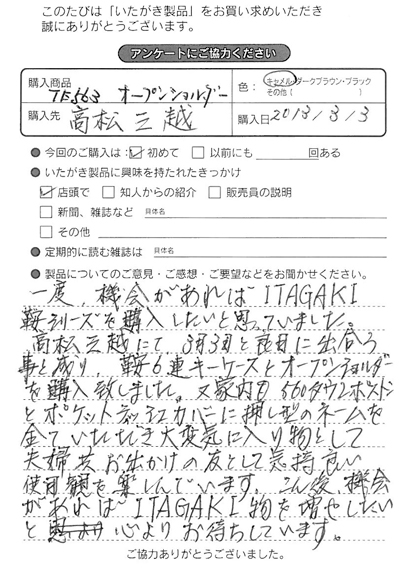 このたびは「いたがき製品」をお買い求めいただき
誠にありがとうございます。
アンケートにご協力ください
購入商品
TE563 オープンショルダー
色：
キャメル・ダークブラウン・ブラック
その他（ ）
購入先
高松三越
購入日 2013/3/3
● 今回のご購入は： 初めて 以前にも 回ある
● いたがき製品に興味を持たれたきっかけ
店頭で 知人からの紹介 販売員の説明
新聞、雑誌など 具体名
その他
● 定期的に読む雑誌は 具体名
● 製品についてのご意見・ご感想・ご要望などをお聞かせください。
一度 機会があれば ITAGAKI
鞍シリーズを購入したいと思っていました。
高松三越にて 3月3日 出合う
事と成り、鞍6連キーケースとオープンショルダー
を購入致しました。又家内も 560ダウンボストン
とポケット カバーに押し型のネームを
いただき大変気に入り物として
夫婦共お出かけの友として気持良い
使用観を楽しんでいます。こん後、機会
があれば ITAGAKI 物を増せしたい
と 心よりお待ちしています。
ご協力ありがとうございました。